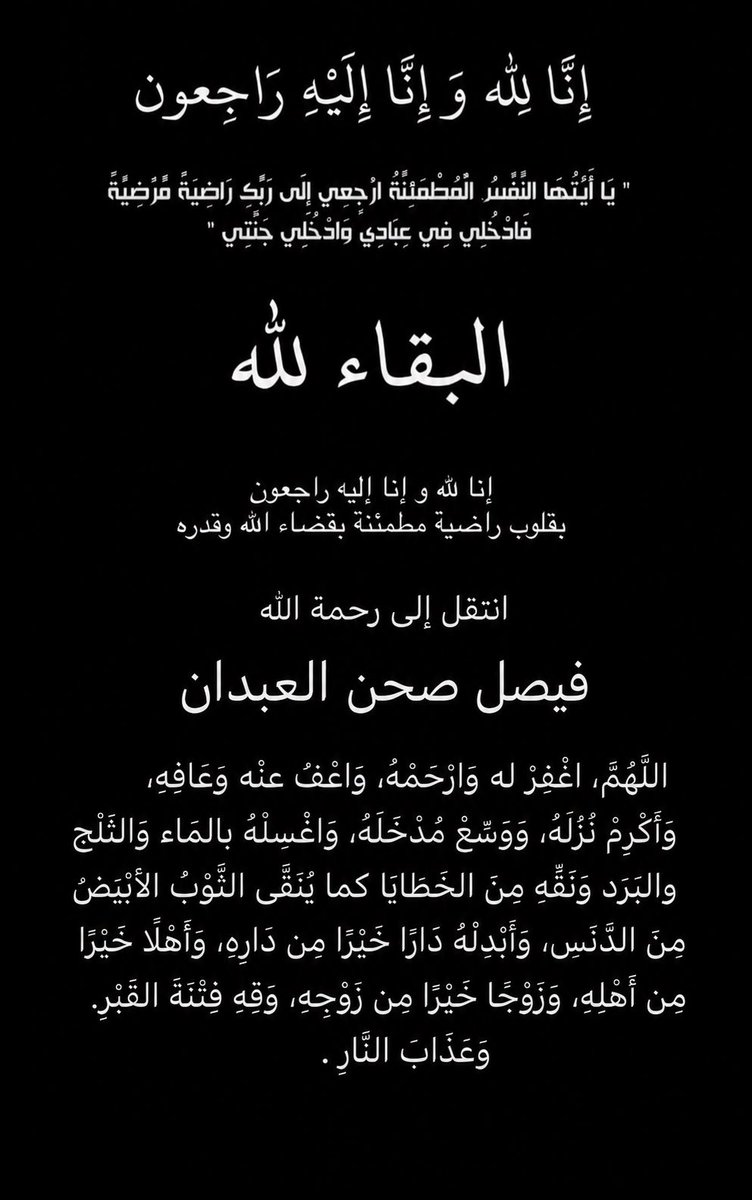 إِنَّا لِلّٰه وَ إِنَّا إِلَيْهِ رَاجِعون
" يَا أَيَّتُهَا النَّفْسُ الْمُطْمَئِنَّةُ ارْجِعِي إِلَى رَبِّكِ رَاضِيَةً مَّرْضِيَّةً
فَادْخُلِي فِي عِبَادِي وَادْخُلِي جَنَّتِي "
البقاء لله
إنا لله و إنا إليه راجعون
بقلوب راضية مطمئنة بقضاء الله وقدره
انتقل إلى رحمة الله
فيصل صحن العبدان
اللَّهُمَّ، اغْفِرْ له وَارْحَمْهُ، وَاعْفُ عنْه وَعَافِهِ،
وَأَكْرِمْ نُزُلَهُ، وَوَسِّعْ مُدْخَلَهُ، وَاغْسِلْهُ بالمَاء وَالثَلْج
والبَرَد وَنَقِّهِ مِنَ الخَطَايَا كما يُنَقَّى الثَّوْبُ الأبْيَضُ
مِنَ الدَّنَسِ، وَأَبْدِلْهُ دَارًا خَيْرًا مِن دَارِهِ، وَأَهْلًا خَيْرًا
مِن أَهْلِهِ، وَزَوْجًا خَيْرًا مِن زَوْجِهِ، وَقِهِ فِتْنَةَ القَبْرِ.
وَعَذَابَ النَّارِ .